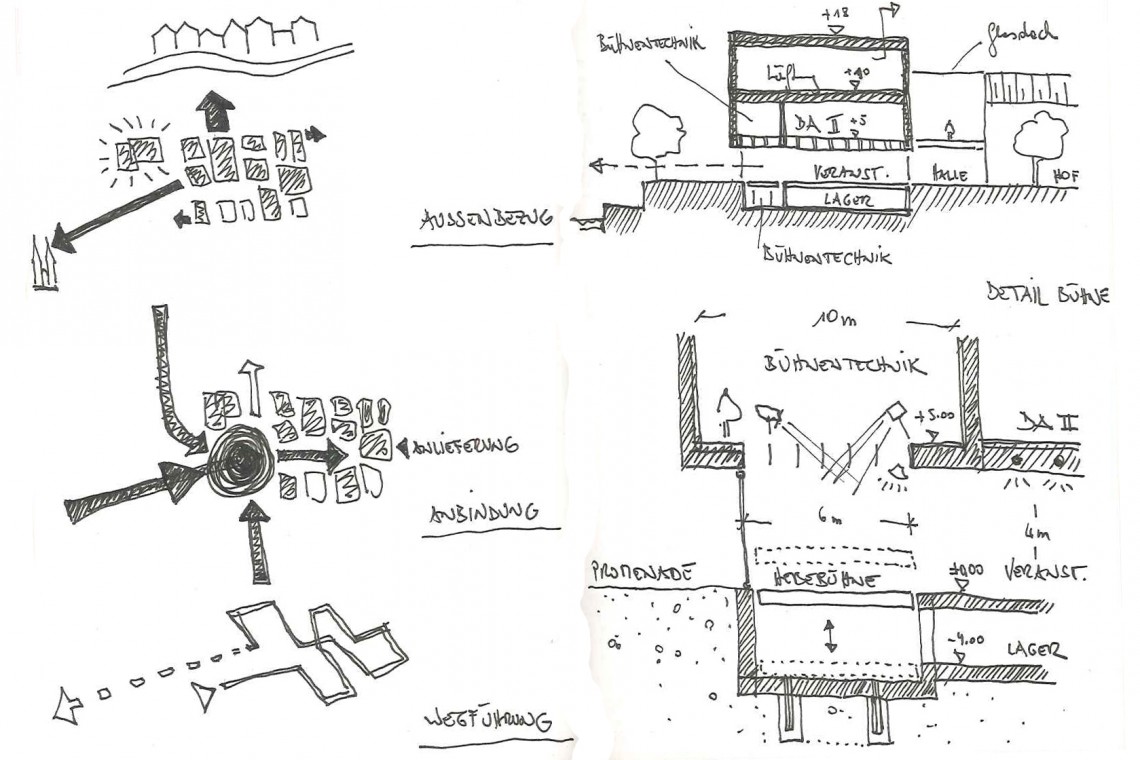 AUSSENBEZUG
ANLIEFERUNG
ANBINDUNG
WEGFÜHRUNG
+18
BÜHNENTECHNIK
Glasdach
Lüft.
+10
DA II
+5
VERANST.
HALLE
HOF
LAGER
BÜHNENTECHNIK
DETAIL BÜHNE
10m
BÜHNENTECHNIK
+5.00
DA II
6m
4m
PROMENADE
HEBEBÜHNE
±0.00
VERANST.
-4.00
LAGER